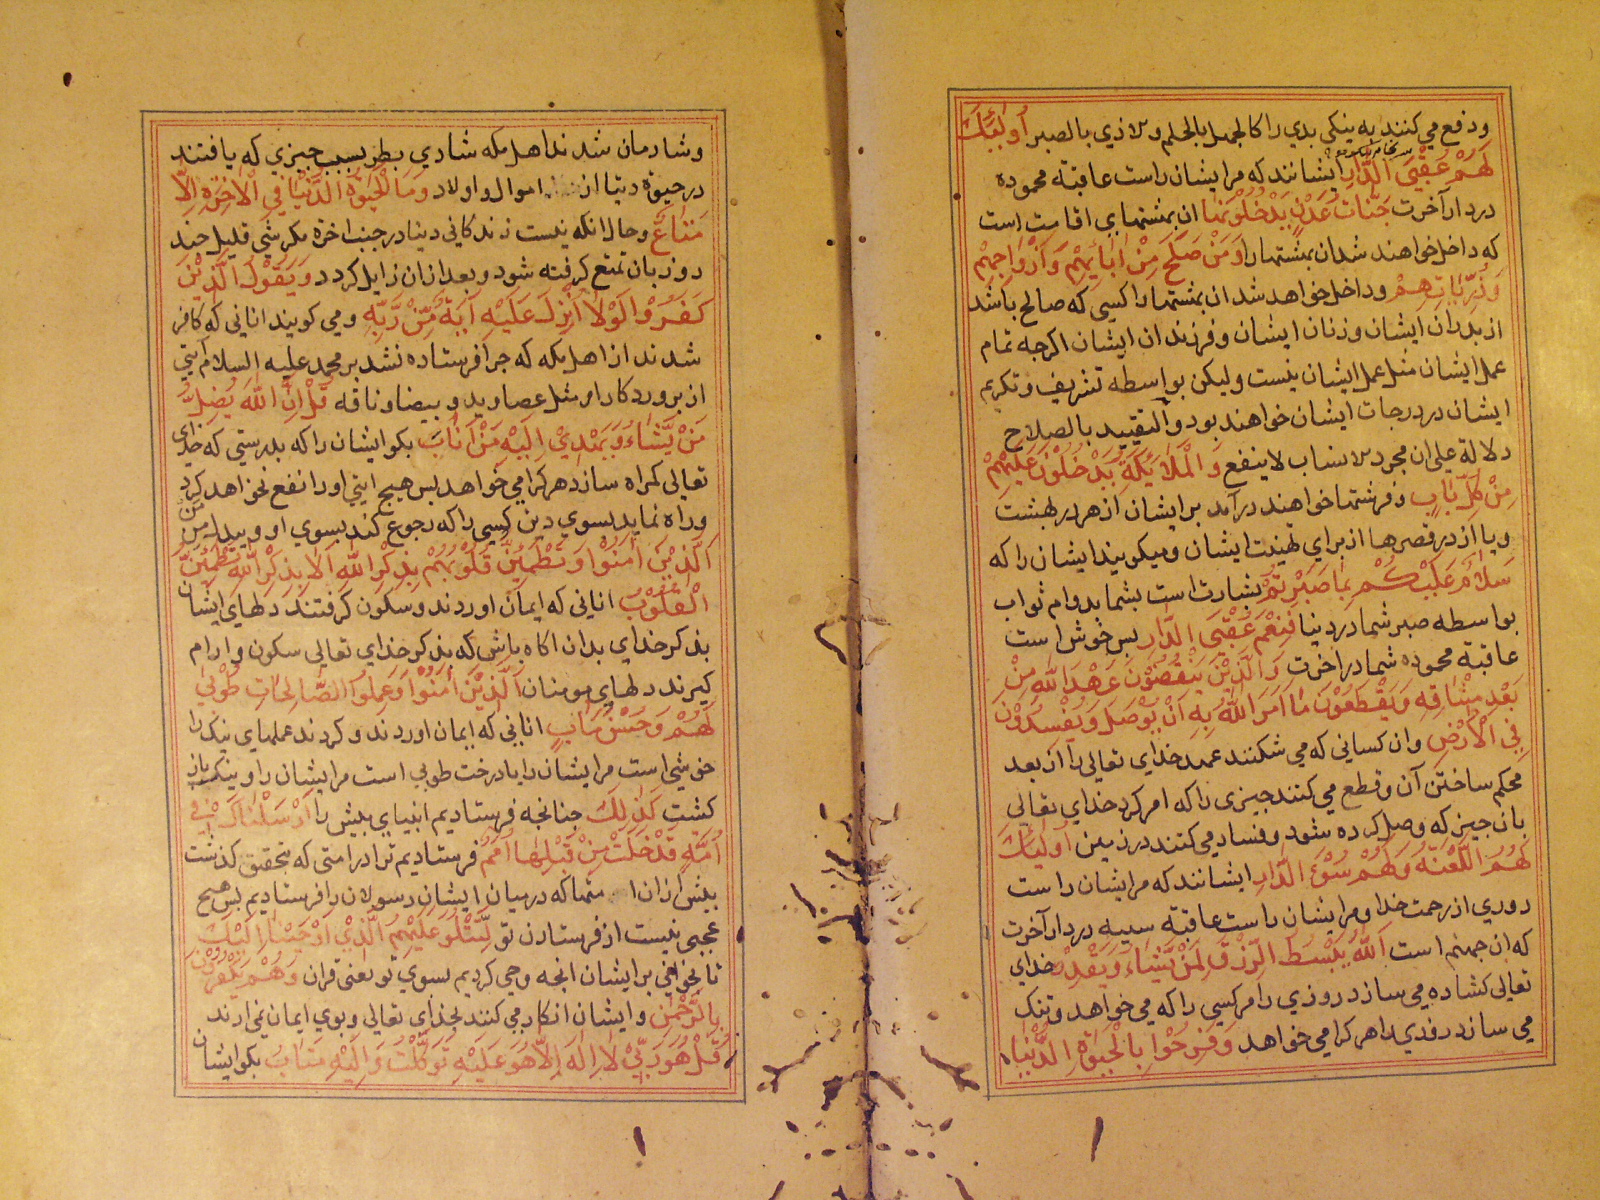 ودفع مي كنند به نيكي بدي را كالجهل بالحلم والاذي بالصبر أُولٰئِكَ
لَهُمْ عُقْبَى الدَّارِ ايشانند كه مر ايشان راست عاقبة محموده
در دار آخرت جَنَّاتُ عَدْنٍ يَدْخُلُونَهَا ان بهشتهاي اقامت است
كه داخل خواهند شد ان بهشتها را وَمَنْ صَلَحَ مِنْ اٰبَائِهِمْ وَاَزْوَاجِهِمْ
وَذُرِّيَّاتِهِمْ وداخل خواهد شد ان بهشتها را كسي كه صالح باشد
از پدران ايشان وزنان ايشان وفرزندان ايشان اكرچه تمام
عمل ايشان مثل عمل ايشان نيست وليكن بواسطه تشريف وتكريم
ايشان در درجات ايشان خواهند بود والتقييد بالصلاح
دلالة على ان مجرد الانساب لا ينفع وَالْمَلَائِكَةُ يَدْخُلُوْنَ عَلَيْهِمْ
مِنْ كُلِّ بَابٍ وفرشتها خواهند درآمد بر ايشان از هر در بهشت
ويا از در قصرها از براي تهنيت ايشان وميكويند ايشان را كه
سَلَامٌ عَلَيْكُمْ بِمَا صَبَرْتُمْ بشارت است بشما بدوام ثواب
بواسطه صبر شما در دنيا فَنِعْمَ عُقْبَى الدَّارِ بس خوش است
عاقبة محموده شما در آخرت وَالَّذِيْنَ يَنْقُضُوْنَ عَهْدَ اللّٰهِ مِنْ
بَعْدِ مِيْثَاقِهِ وَيَقْطَعُوْنَ مَا اَمَرَ اللّٰهُ بِهِ اَنْ يُوْصَلَ وَيُفْسِدُوْنَ
فِي الْاَرْضِ وان كساني كه مي شكنند عهد خداي تعالى را از بعد
محكم ساختن آن وقطع مي كنند چيزي را كه امر كرد خداي تعالى
بان چيز كه وصل كرده شود وفساد مي كنند در زمين اُولٰئِكَ
لَهُمُ اللَّعْنَةُ وَلَهُمْ سُوْءُ الدَّارِ ايشانند كه مر ايشان راست
دوري از رحمت خدا ومر ايشان راست عاقبة سييه در دار آخرت
كه ان جهنم است اَللّٰهُ يَبْسُطُ الرِّزْقَ لِمَنْ يَّشَاءُ وَيَقْدِرُ خداي
تعالى كشاده مي سازد روزي را مر كسي را كه مي خواهد وتنك
مي سازد روزي را هر كرا مي خواهد وَفَرِحُوْا بِالْحَيٰوةِ الدُّنْيَا
وشادمان شدند اهل مكه شادي بطر بسبب چيزي كه يافتند
در حيوة دنيا از اموال واولاد وَمَا الْحَيٰوةُ الدُّنْيَا فِي الْاٰخِرَةِ اِلَّا
مَتَاعٌ وحال انكه نيست زندكاني دنيا در جنب اخرة مكر شي قليل چند
روز بان تمتع كرفته شود وبعد ازان زايل كردد وَيَقُوْلُ الَّذِيْنَ
كَفَرُوْا لَوْلَا اُنْزِلَ عَلَيْهِ اٰيَةٌ مِّنْ رَّبِّهِ ومي كويند اناني كه كافر
شدند از اهل مكه كه چرا فرستاده نشد بر محمد عليه السلام آيتي
از پروردكار او مثل عصا ويد وبيضا وناقه قُلْ اِنَّ اللّٰهَ يُضِلُّ
مَنْ يَّشَاءُ وَيَهْدِيْ اِلَيْهِ مَنْ اَنَابَ بكو ايشان را كه بدرستي كه خداي
تعالى كمراه سازد هر كرا مي خواهد بس هيچ ايتي او را نفع نخواهد كرد
وراه نمايد بسوي دين كسي را كه رجوع كند بسوي او
اَلَّذِيْنَ اٰمَنُوْا وَتَطْمَئِنُّ قُلُوْبُهُمْ بِذِكْرِ اللّٰهِ اَلَا بِذِكْرِ اللّٰهِ تَطْمَئِنُّ
الْقُلُوْبُ اناني كه ايمان اوردند وسكون كرفتند دلهاي ايشان
بذكر خداي بدان اكاه باش كه بذكر خداي تعالى سكون وارام
كيرند دلهاي مومنان اَلَّذِيْنَ اٰمَنُوْا وَعَمِلُوا الصَّالِحَاتِ طُوْبٰى
لَهُمْ وَحُسْنُ مَاٰبٍ اناني كه ايمان اوردند وكردند عملهاي نيك را
خوشي است مر ايشان را يا درخت طوبي است مر ايشان را ونيك باز
كشت كَذٰلِكَ چنانچه فرستاديم انبياي پيش را اَرْسَلْنَاكَ فِيْ
اُمَّةٍ قَدْ خَلَتْ مِنْ قَبْلِهَا اُمَمٌ فرستاديم ترا در امتي كه بتحقيق كذشت
پيش ازان امتها كه در ميان ايشان رسولان را فرستاديم بس هيچ
عجبي نيست از فرستادن تو لِتَتْلُوَ عَلَيْهِمُ الَّذِيْ اَوْحَيْنَا اِلَيْكَ
تا بخواني بر ايشان انچه وحي كرديم بسوي تو يعني قران وَهُمْ يَكْفُرُوْنَ
بِالرَّحْمٰنِ وايشان انكار مي كنند بخداي تعالى وبوي ايمان نمي ارند
قُلْ هُوَ رَبِّيْ لَا اِلٰهَ اِلَّا هُوَ عَلَيْهِ تَوَكَّلْتُ وَاِلَيْهِ مَتَابُ بكو ايشان